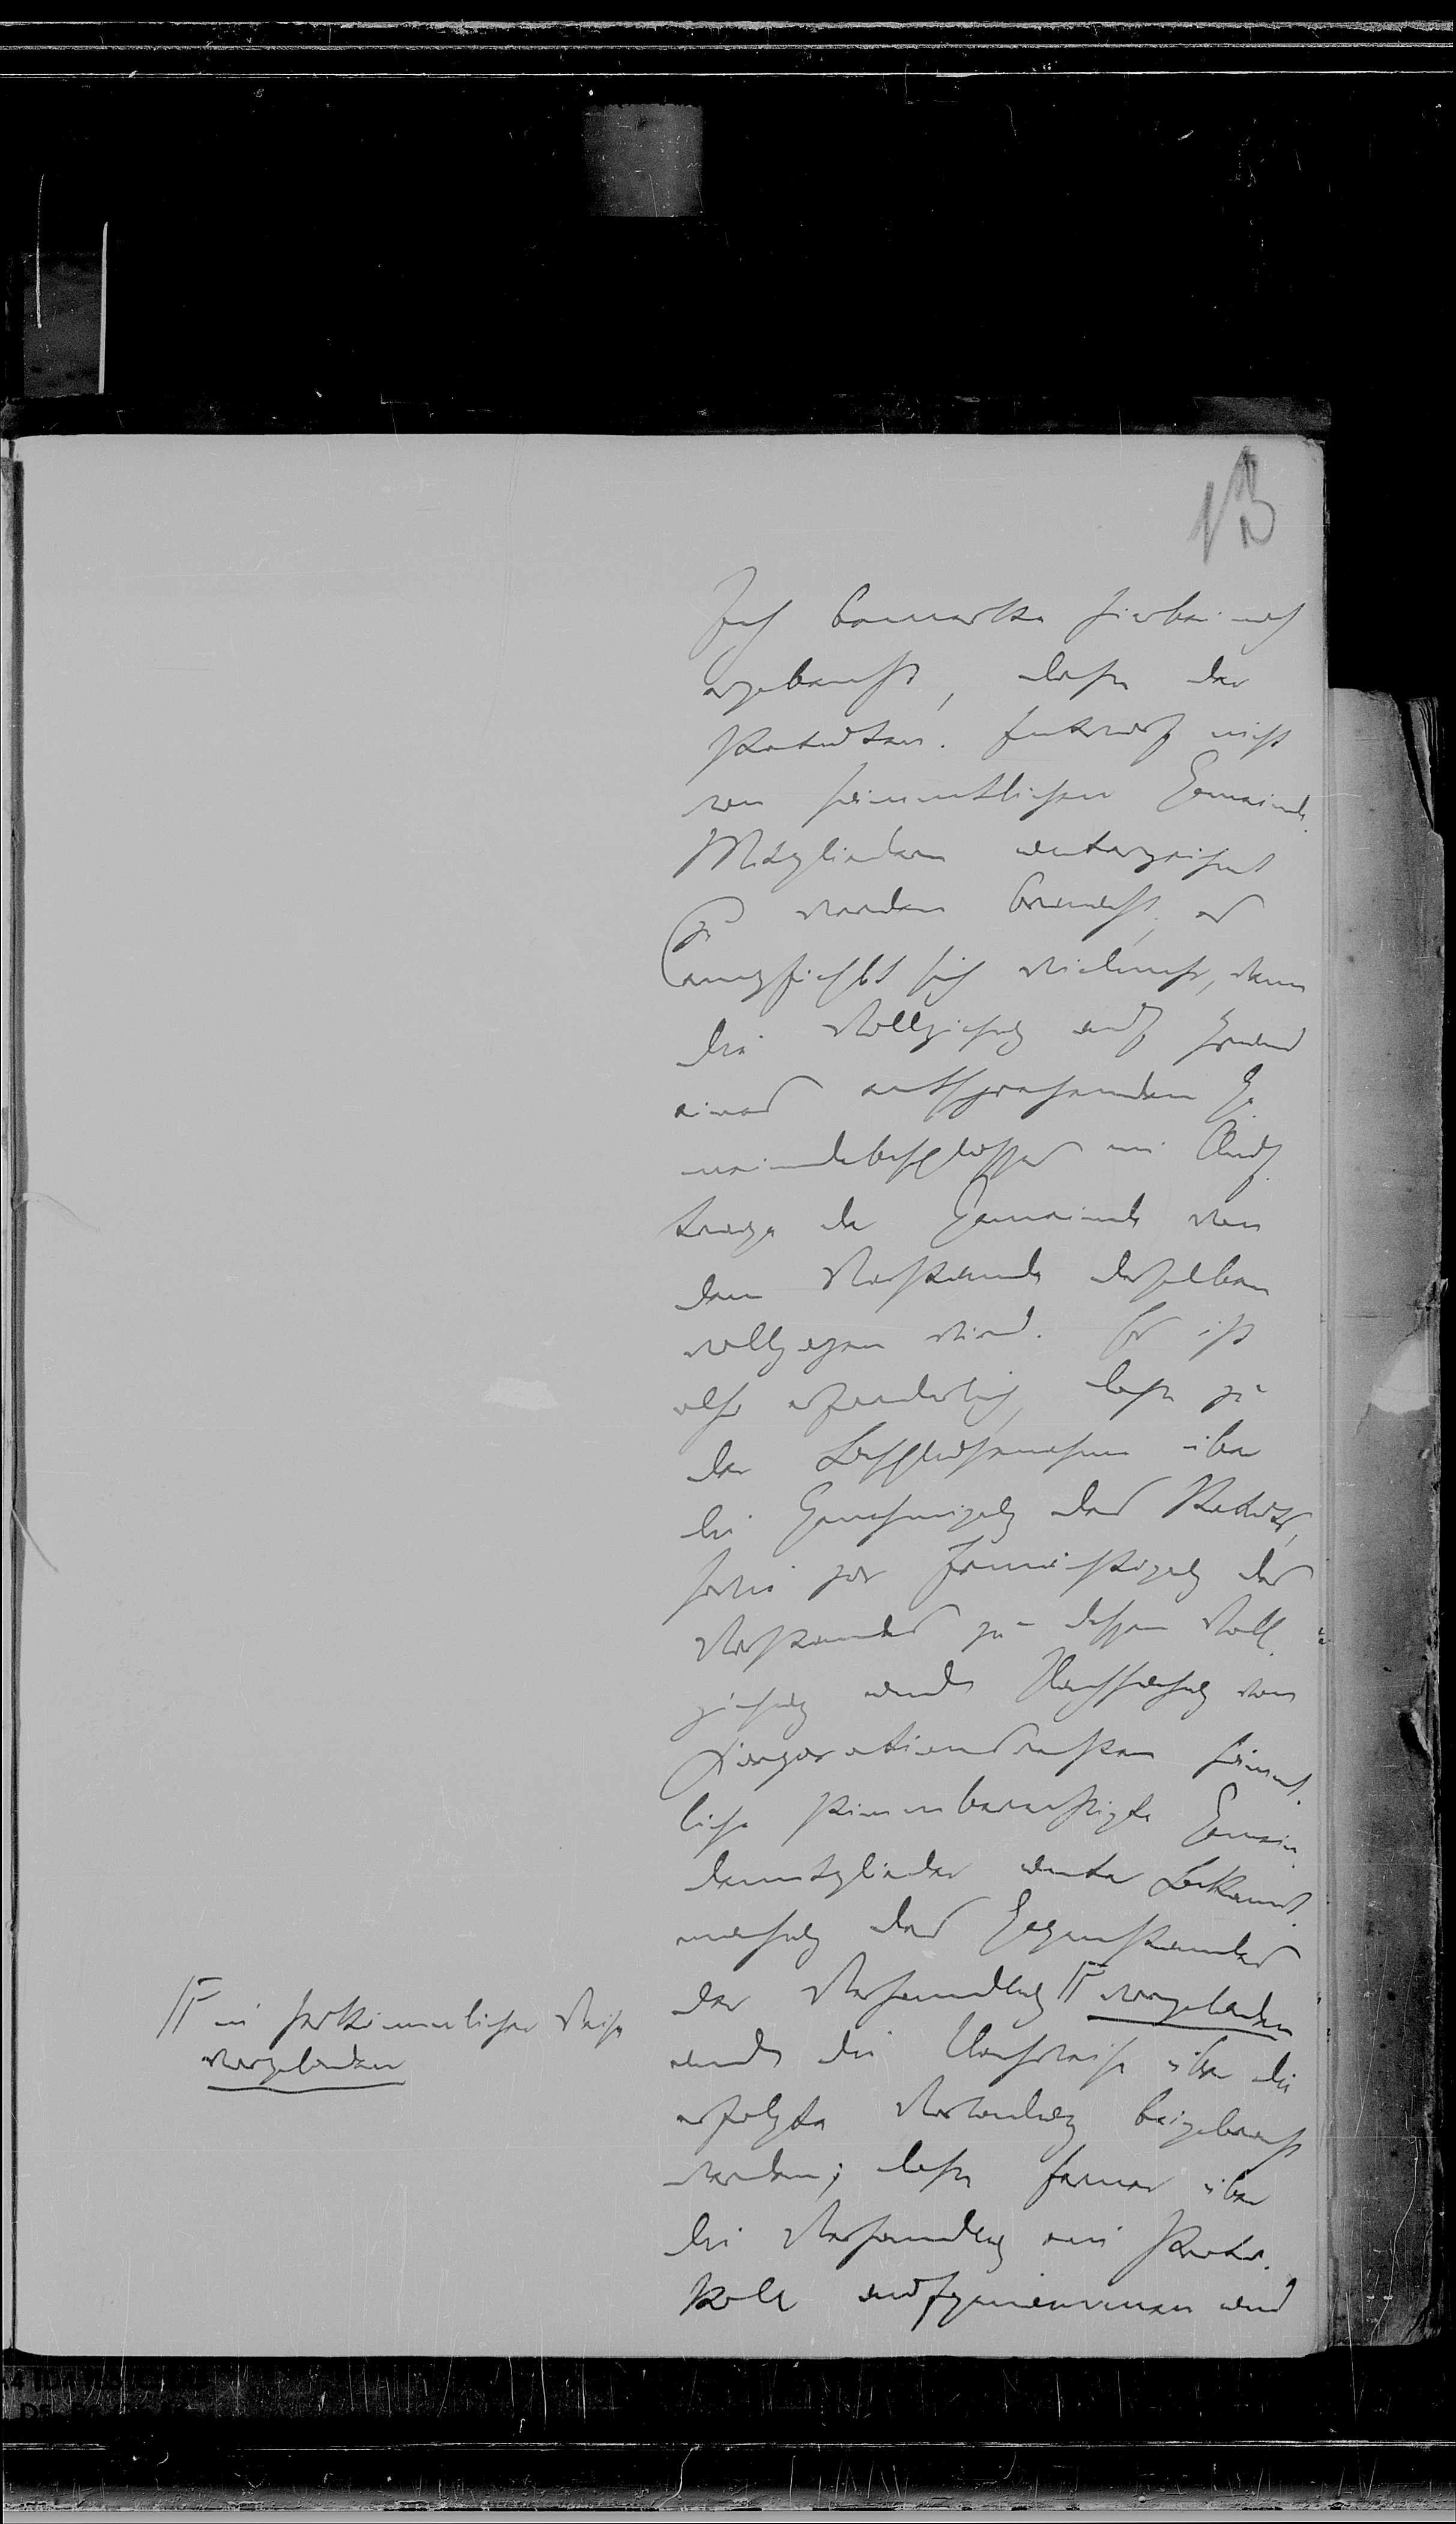 13
Ich bemerke hierbei noch
ergebenst, dass der
Statuten-Entwurf nicht
von sämmtlichen Gemeinde-
Mitgliedern unterzeichnet
zu werden braucht, es
empfiehlt sich vielmehr, wenn
die Vollziehung auf Grund
eines entsprechenden Ge-
meindebeschlusses im Auf-
trage der Gemeinde von
dem Vorstande derselben
vollzogen wird. Es ist
also erforderlich, dass zu
der Beschlussnahme über
die Genehmigung des Statuts,
sowie zur Ermächtigung des
Vorstandes zu dessen Voll-
ziehung und Nachsuchung von
Corporationsrechten sämmt-
liche stimmberechtigte Gemein-
demitglieder unter Bekannt-
machung des Gegenstandes
der Verhandlung ╓ vorgeladen
╓ in herkömmlicher Weise
vorgeladen
und die Nachweise über die
erfolgte Vorladung beigebracht
werden; dass ferner über
die Verhandlung ein Proto-
koll aufgenommen und